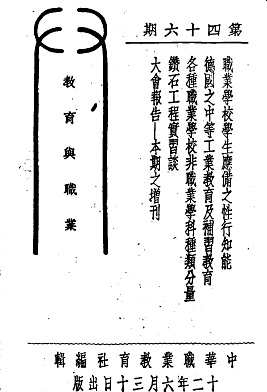 第四十六期
職業學校學生應備之性行知能
德國之中等工業教育及補習教育
各種職業學校非職業學科種類分量
鑽石工程實習談
大會報告—本期之增刊
教育與職業
中華職業教育社編輯
十二年六月三十日出版